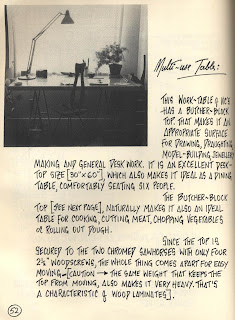 Multi-use Table:
THIS WORK-TABLE OF MICE
HAS A BUTCHER-BLOCK
TOP THAT MAKES IT AN
APPROPRIATE SURFACE
FOR DRAWING, DRAUGHTING
MODEL-BUILDING, JEWELLERY
MAKING AND GENERAL DESK WORK. IT IS AN EXCELLENT DESK-
TOP SIZE [30"x60"], WHICH ALSO MAKES IT IDEAL AS A DINING
TABLE, COMFORTABLY SEATING SIX PEOPLE.
THE BUTCHER-BLOCK
TOP [SEE NEXT PAGE], NATURALLY MAKES IT ALSO AN IDEAL
TABLE FOR COOKING, CUTTING MEAT, CHOPPING VEGETABLES
OR ROLLING OUT DOUGH.
SINCE THE TOP IS
SECURED TO THE TWO CHROMED SAWHORSES WITH ONLY FOUR
2½" WOODSCREWS, THE WHOLE THING COMES APART FOR EASY
MOVING—[CAUTION → THE SAME WEIGHT THAT KEEPS THE
TOP FROM MOVING, ALSO MAKES IT VERY HEAVY. THAT'S
A CHARACTERISTIC of WOOD LAMINATES].
52